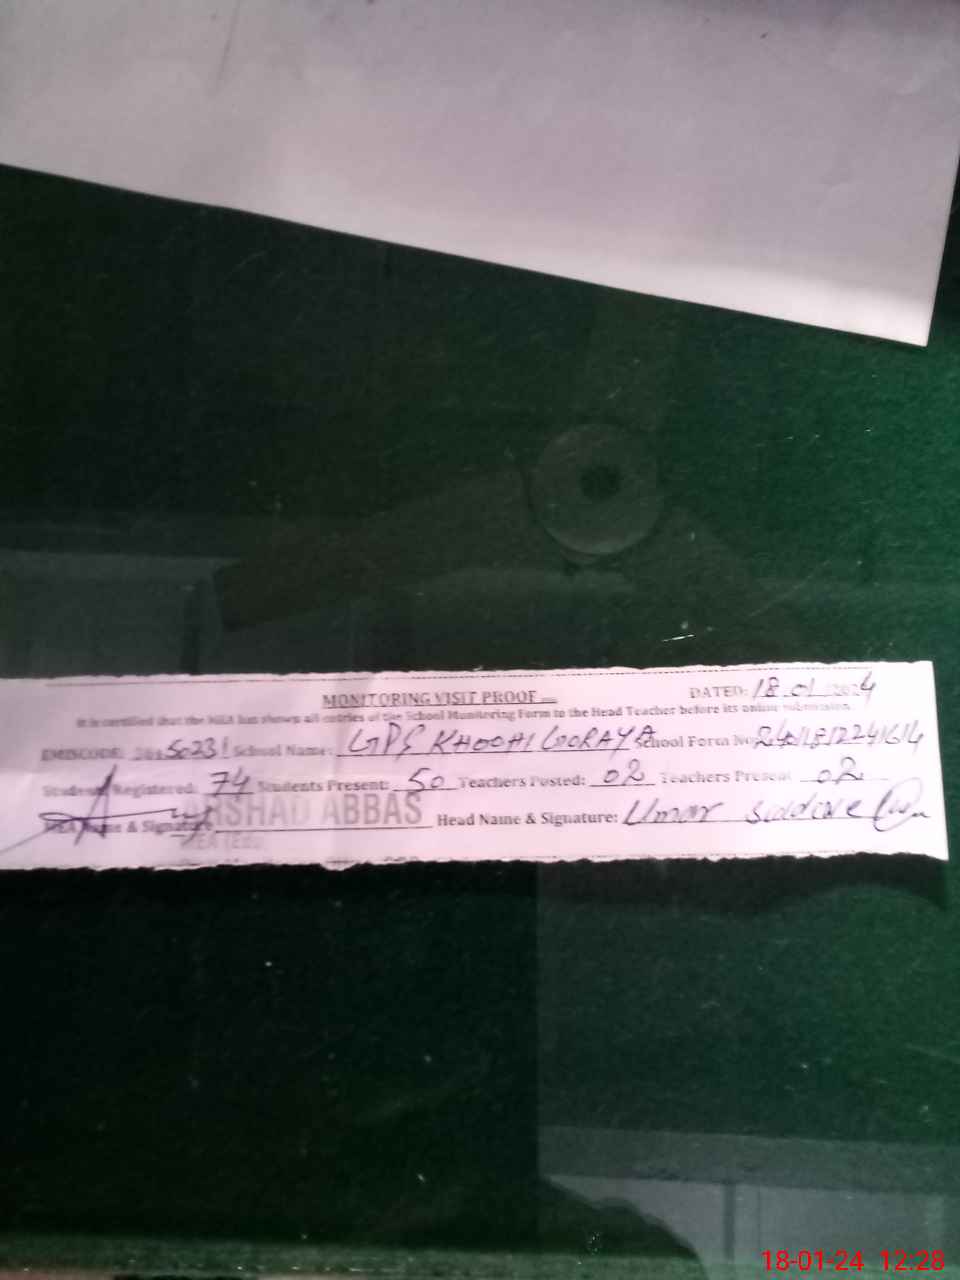 MONITORING VISIT PROOF
DATED: 18.01.2024
It is certified that the MEA has shown all entries of the School Monitoring Form to the Head Teacher before its online submission.
EMISCODE: School Name: GPS KHOOHI GORAYA School Form No.
Student Registered: 74 Students Present: 50 Teachers Posted: 02 Teachers Present 02
MEA Name & Signature ARSHAD ABBAS Head Name & Signature: Umar
MEA (EDU)
18-01-24 12:28